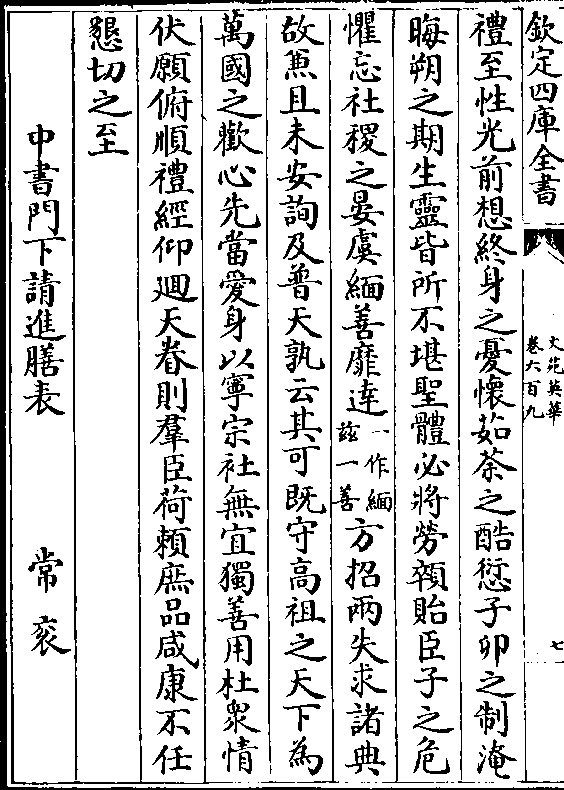 欽定四庫全書
文苑英華
卷六百九
七
禮至性光前想終身之憂懷茹荼之酷愆子卯之制淹
晦朔之期生靈皆所不堪聖體必將勞顇貽臣子之危
懼忘社稷之晏虞緬善靡達一作緬茲一善方招兩失求諸典
故兼且未安詢及普天孰云其可既守高祖之天下為
萬國之歡心先當愛身以寧宗社無宜獨善用杜衆情
伏願俯順禮經仰迴天眷則羣臣荷賴庶品咸康不任
懇切之至
中書門下請進膳表 常衮